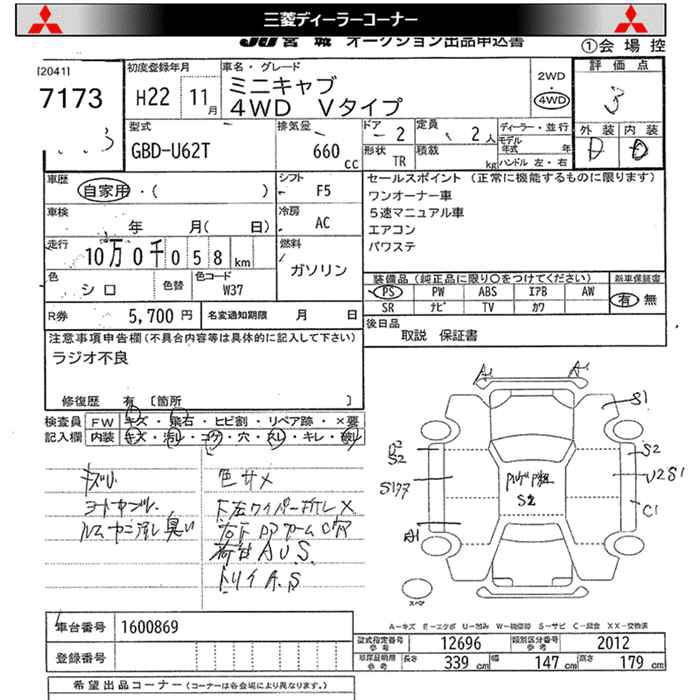 三菱ディーラーコーナー
JU宮城 オークション出品申込書
①会場控
[2041]
7173
初度登録年月
H22 11月
車名・グレード
ミニキャブ
4WD Vタイプ
2WD
4WD
評価点
3
外装 内装
D D
型式
GBD-U62T
排気量
660 cc
ドア 2
形状 TR
定員 2人
積載 kg
ディーラー・並行
モデル年式 年
ハンドル 左・右
車歴
自家用・( )
シフト
F5
車検
年 月( 日)
冷房
AC
走行
10万0千058km
燃料
ガソリン
色
シロ
色替
色コード
W37
R券 5,700円
名変通知期限 月 日
セールスポイント (正常に機能するものに限ります)
ワンオーナー車
5速マニュアル車
エアコン
パワステ
装備品(純正品に限り〇をつけてください)
PS PW ABS エアB AW
SR ナビ TV カワ
新車保証書
有 無
後日品
取説 保証書
注意事項申告欄(不具合内容等は具体的に記入して下さい)
ラジオ不良
修復歴 有 [箇所 ]
検査員記入欄
FW キズ・飛石・ヒビ割・リペア跡・×要
内装 キズ・汚レ・コゲ・穴・スレ・キレ・破レ
色サメ
A1 A1
S1
S2
U2S1
C1
S2
A1
S2
スペア
A-キズ E-エクボ U-凹み W-補修跡 S-サビ C-腐食 XX-交換済
車台番号 1600869
登録番号
型式指定番号 参考 12696
類別区分番号 参考 2012
車庫証明用 参考 長さ 339cm 幅 147cm 高さ 179cm
希望出品コーナー(コーナーは各会場により異なります。)